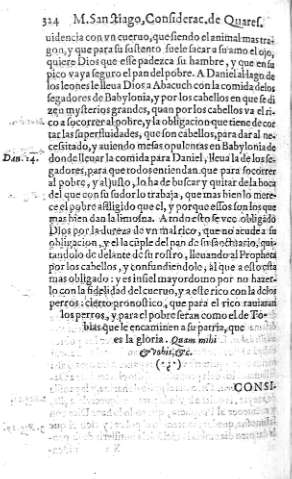 324 M. Sanctiago, Considerac. de Quares.
uidencia con vn cueruo, que siendo el animal mas tra-
gon, y que para su sustento suele sacar a su amo el ojo,
quiere Dios que esse padezca su hambre, y que en su
pico vaya seguro el pan del pobre. A Daniel al lago de
los leones le lleua Dios a Abacuch con la comida de los
segadores de Babylonia, y por los cabellos en que se di
zen mysterios grandes, quan por los cabellos va el ri-
co a socorrer al pobre, y la obligacion que tiene de cor
tar las superfluidades, que son cabellos, para dar al ne-
cessitado, y auiendo mesas opulentas en Babylonia de
Dan. 14.
donde lleuar la comida para Daniel, lleua la de los se-
gadores, para que todos entiendan que para socorrer
al pobre, y al justo, lo ha de buscar y quitar de la boca
del que con su sudor lo trabaja, que mas bien lo mere-
ce el pobre astligido que el, y porque essos son los que
mas bien dan la limosna. A todo esto se vee obligado
Dios por la dureza de vn mal rico, que no acude a su
obligacion, y el la cũple del pan de su sanctuario, qui-
tandolo de delante de su rostro, lleuando al Propheta
por los cabellos, y confundiendole, al que a esto esta
mas obligado: y es infiel mayordomo por no hazer-
lo con la fidelidad del cueruo, y a este rico con la de los
perros: cierto pronostico, que para el rico rauiaran
los perros, y para el pobre seran como el de To-
bias que le encaminen a su patria, que
es la gloria. Quam mihi
& vobis, &c.
(·.·)
CONSI-